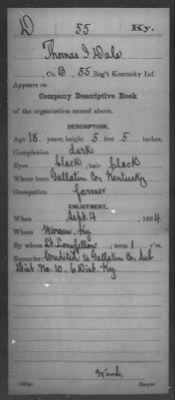 D 55 Ky.
Thomas J Dale
, Co. B, 55 Reg't Kentucky Inf.
Appears on
Company Descriptive Book
of the organization named above.
DESCRIPTION.
Age 18 years; height 5 feet 5 inches.
Complexion dark
Eyes black; hair black
Where born Gallatin Co, Kentucky
Occupation farmer
ENLISTMENT.
When Sept. 4, 1864
Where Warsaw, Ky
By whom Lt. Longfellow; term 1 y'rs.
Remarks: Credited to Gallatin Co. Sub
Dist No. 10, 6 Dist. Ky